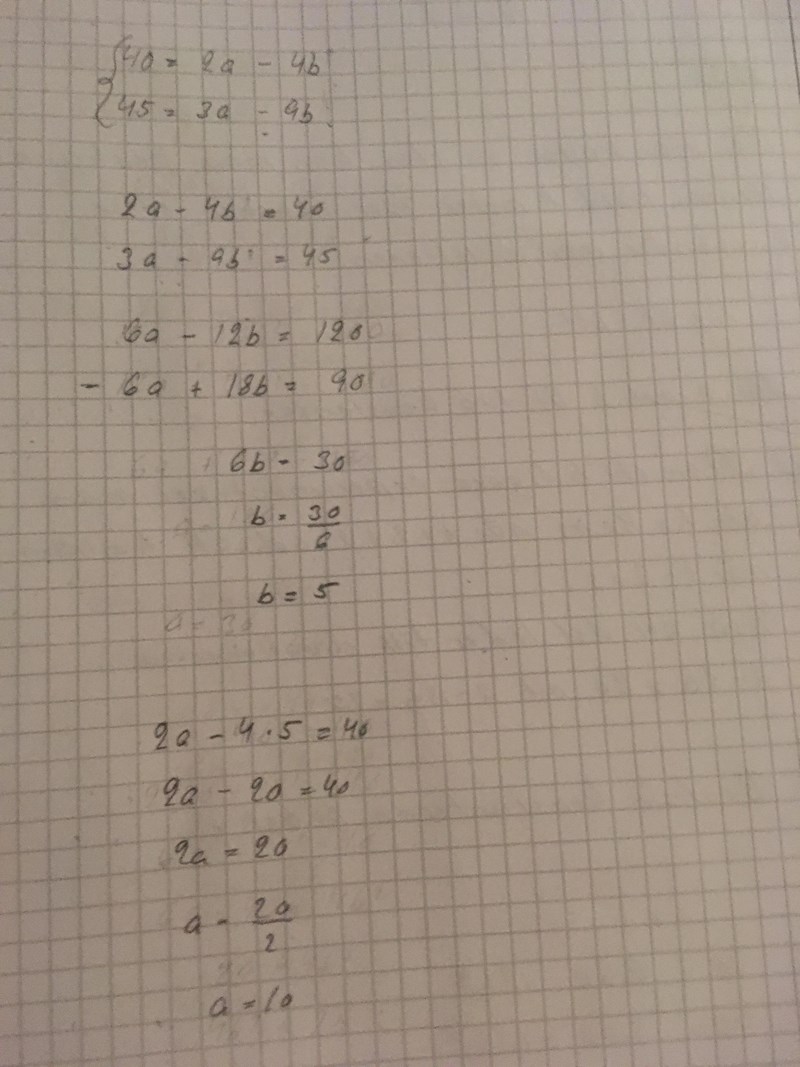 40 = 2a - 4b
45 = 3a - 9b
2a - 4b = 40
3a - 9b = 45
6a - 12b = 120
- 6a + 18b = 90
6b = 30
b = 30/6
b = 5
a = 30
2a - 4 · 5 = 40
2a - 20 = 40
2a = 20
a = 20/2
a = 10